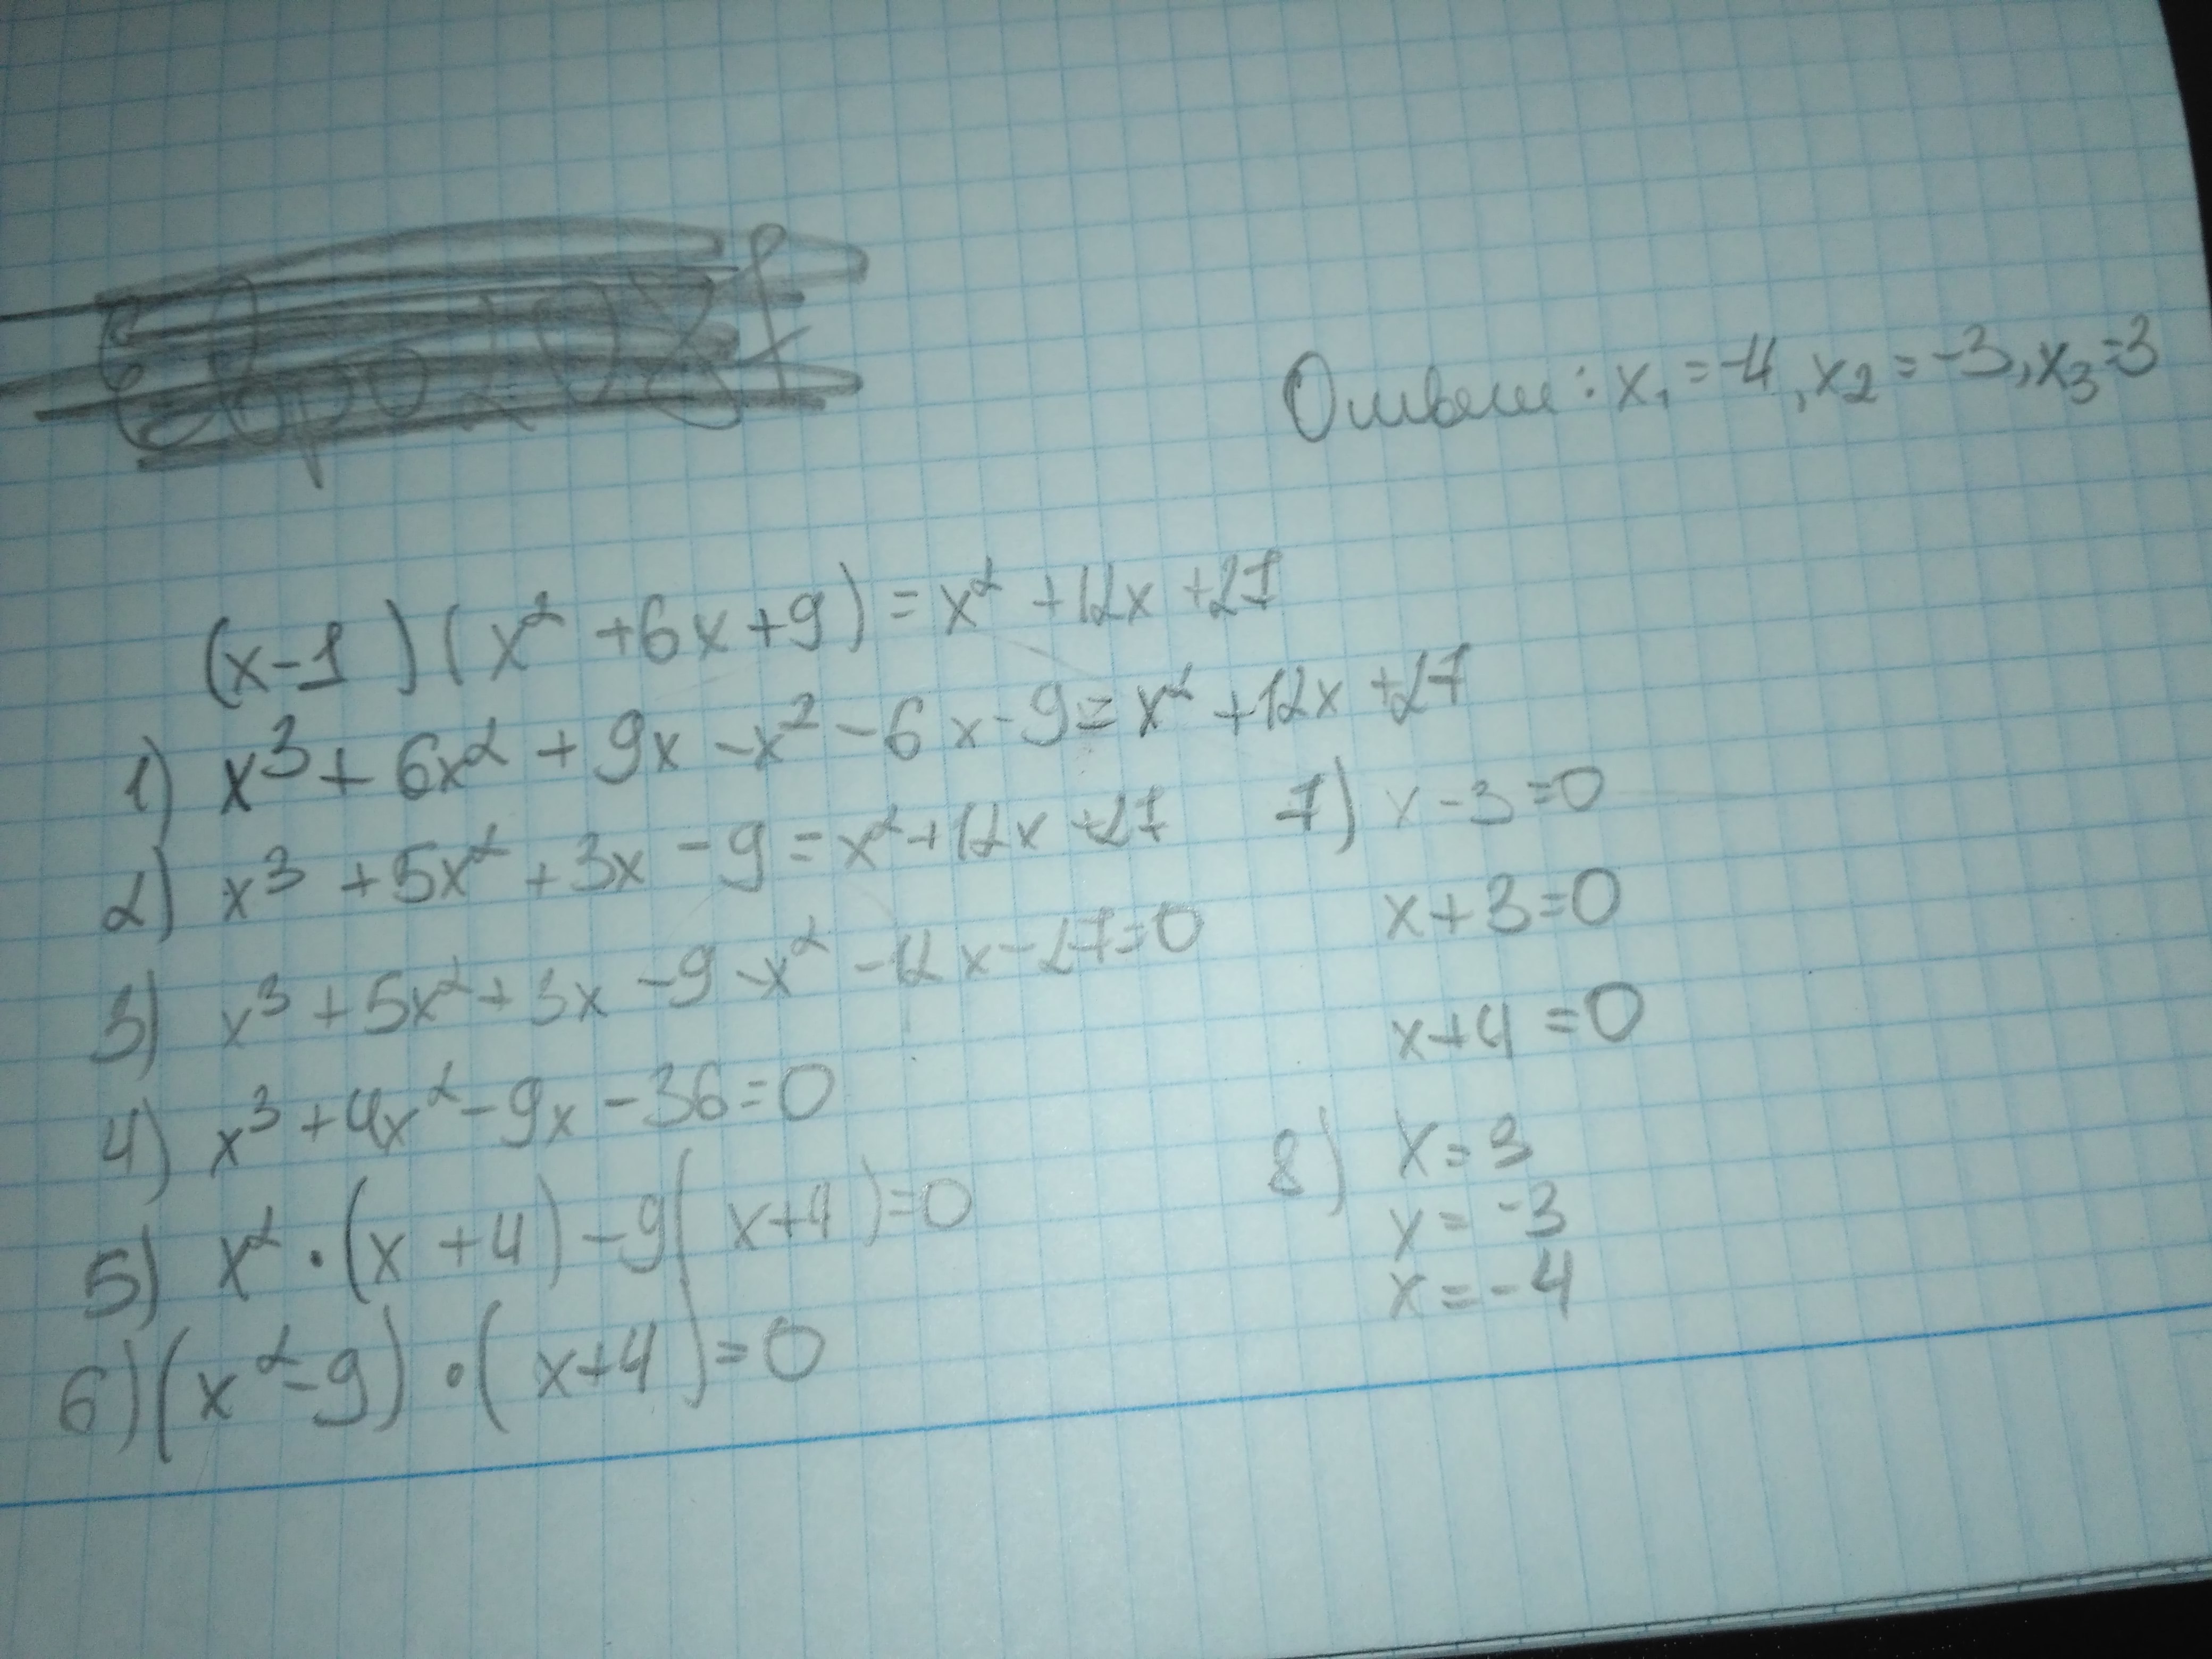 Ответ: x₁ = -4, x₂ = -3, x₃ = 3
(x-1)(x² +6x+9) = x² +12x +27
1) x³ + 6x² + 9x - x² - 6x - 9 = x² + 12x + 27
2) x³ + 5x² + 3x - 9 = x² + 12x + 27
3) x³ + 5x² + 3x - 9 - x² - 12x - 27 = 0
4) x³ + 4x² - 9x - 36 = 0
5) x² · (x + 4) - 9(x+4) = 0
6) (x² - 9) · (x+4) = 0
7) x - 3 = 0
x + 3 = 0
x + 4 = 0
8) x = 3
x = -3
x = -4